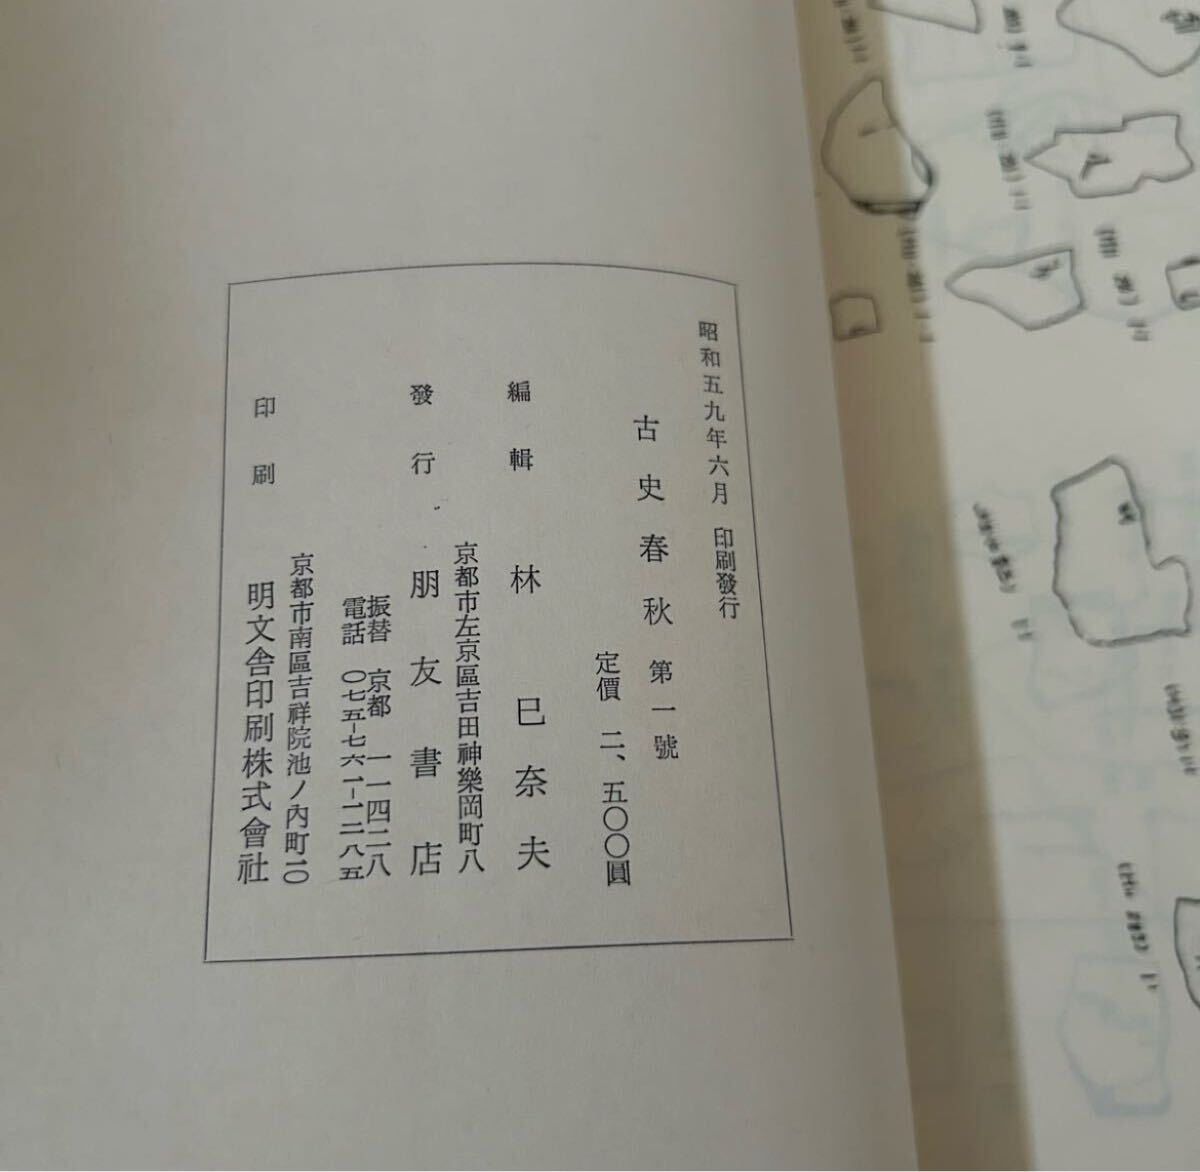 昭和五九年六月 印刷發行
古史春秋 第一號
定價 二、五〇〇圓
編輯 林巳奈夫
京都市左京區吉田神樂岡町八
發行 朋友書店
振替 京都 一一四二八
電話 〇七五-七六一-一二八五
京都市南區吉祥院池ノ內町10
印刷 明文舍印刷株式會社